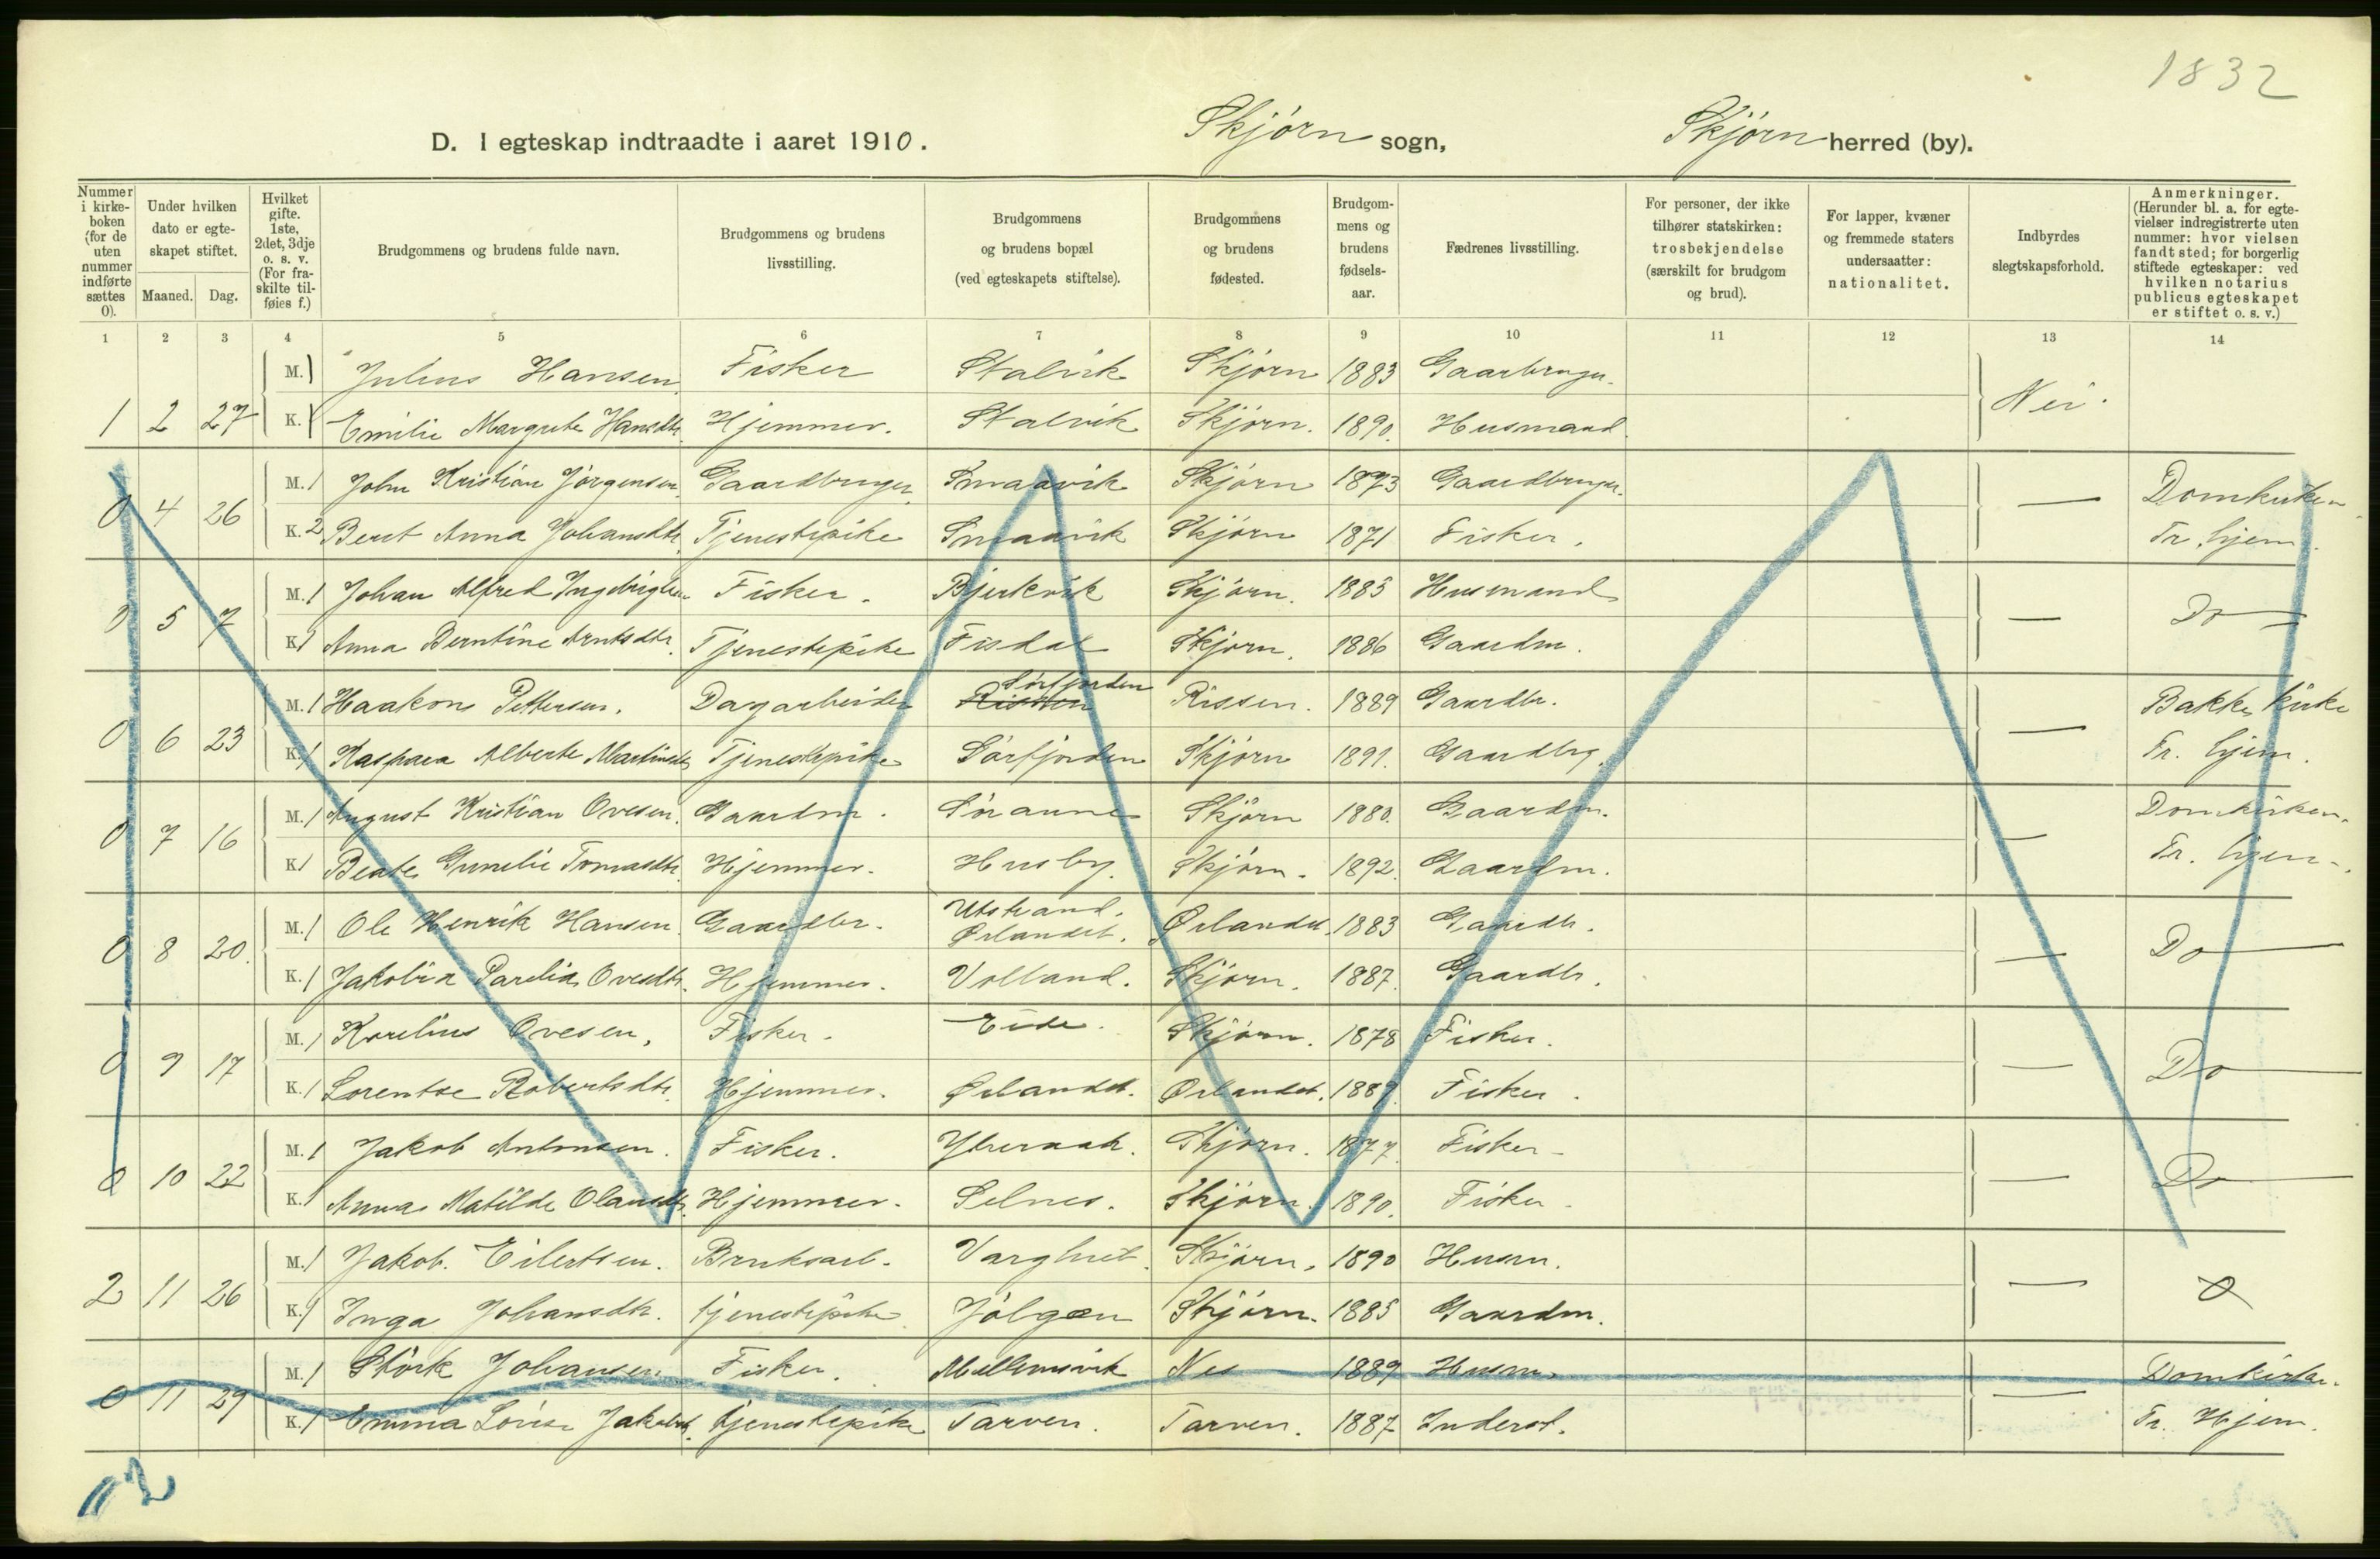 1832
D. I egteskap indtraadte i aaret 1910. Skjørn sogn, Skjørn herred (by).
Nummer i kirkeboken (for de uten nummer indførte sættes 0).
Under hvilken dato er egteskapet stiftet.
Maaned. Dag.
Hvilket gifte. 1ste, 2det, 3dje o. s. v. (For fraskilte tilføies f.)
Brudgommens og brudens fulde navn.
Brudgommens og brudens livsstilling.
Brudgommens og brudens bopæl (ved egteskapets stiftelse).
Brudgommens og brudens fødested.
Brudgommens og brudens fødselsaar.
Fædrenes livsstilling.
For personer, der ikke tilhører statskirken: trosbekjendelse (særskilt for brudgom og brud).
For lapper, kvæner og fremmede staters undersaatter: nationalitet.
Indbyrdes slegtskapsforhold.
Anmerkninger. (Herunder bl. a. for egtevielser indregistrerte uten nummer: hvor vielsen fandt sted; for borgerlig stiftede egteskaper: ved hvilken notarius publicus egteskapet er stiftet o. s. v.)
1 2 3 4 5 6 7 8 9 10 11 12 13 14
M. 1 Julius Hansen Fisker Stalvik Skjørn 1883 Gaarbruger. Nei.
1 2 27 K. 1 Emilie Margrete Hansdtr. Hjemmev. Stalvik Skjørn. 1890. Husmand.
M. 1 John Kristian Jørgensen. Gaardbruger Smaavik Skjørn 1873 Gaardbruger. — Domkirken
0 4 26 K. 2 Berit Anna Johansdtr. Tjenestepike Smaavik Skjørn 1871 Fisker. Tr. hjem.
M. 1 Johan Alfred Ingebrigtsen Fisker. Bjerkvik Skjørn. 1883 Husmand — Do —
0 5 7 K. 1 Anna Berntine Arntsdtr. Tjenestepike Fisdal Skjørn. 1886 Gaardm.
M. 1 Haakon Pettersen. Dagarbeider Rissen Sørfjorden Rissen. 1889 Gaardbr. — Bakke kirke
0 6 23 K. 1 Kaspara Alberte Martinsdtr Tjenestepike Sørfjorden Skjørn 1891. Gaardbrg. Tr. hjem.
M. 1 August Kristian Ovesen. Gaardm. Søraune Skjørn 1880. Gaardm. — Domkirken.
0 7 16 K. 1 Beate Gunelie Tomasdtr. Hjemmev. Husby. Skjørn. 1892. Gaardm. Tr. hjem.
M. 1 Ole Henrik Hansen. Gaardbr. Utstrand. Ørlandet. Ørlandet. 1883 Gaardb. — Do —
0 8 20. K. 1 Jakobia Parelia Ovesdtr. Hjemmev. Volland. Skjørn. 1887. Gaardb.
M. 1 Korelius Ovesen, Fisker. Eide. Skjørn. 1878 Fisker. — Do —
0 9 17 K. 1 Lorentse Robertsdtr. Hjemmev. Ørlandet. Ørlandet. 1889. Fisker.
M. 1 Jakob Antonsen. Fisker. Skjørn. 1877. Fisker — Do —
0 10 22 K. 1 Anna Matilde Olausdtr. Hjemmev. Selnes. Skjørn. 1890. Fisker.
M. 1 Jakob. Eilertsen. Bruksarb. Varghiet. Skjørn. 1890 Husm. — 0
2 11 26 K. 1 Inga Johansdtr. tjenestepike Jølgen Skjørn. 1885 Gaardm.
M. 1 Størk Johansen Fisker. Mellemsvik Nes 1889 Husm. — Domkirken.
0 11 29 K. 1 Emma Lovise Jakobsd. tjenestepike Tarven. Tarven. 1887 Inderst. Tr. Hjem.